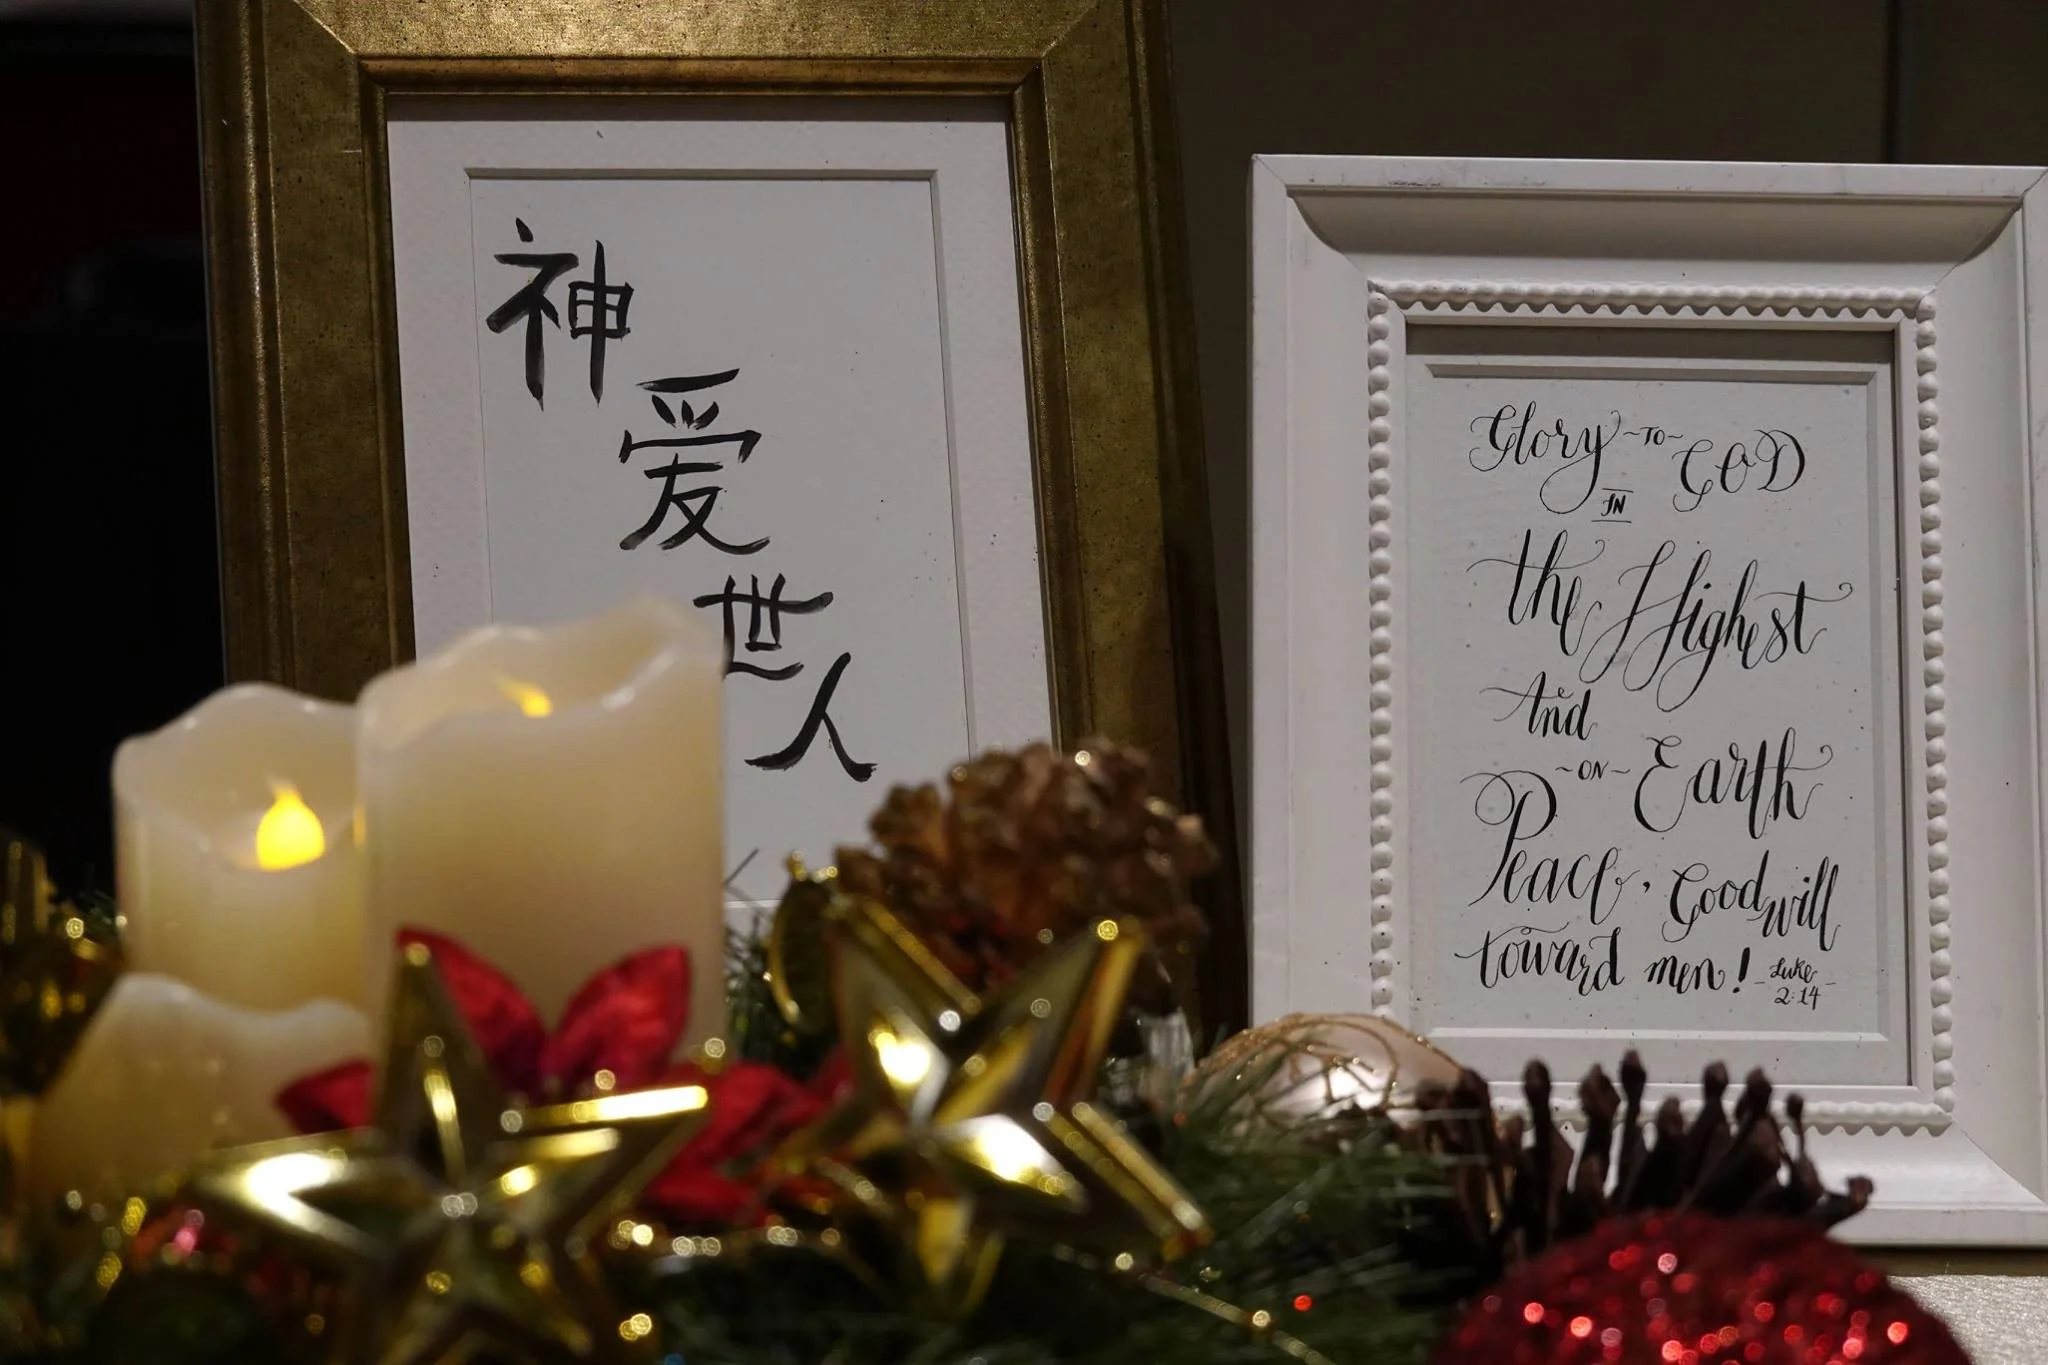 神
爱
世
人
Glory ~TO~ GOD
IN
the Highest
And
~ON~ Earth
Peace, Goodwill
toward men! -Luke-
2:14